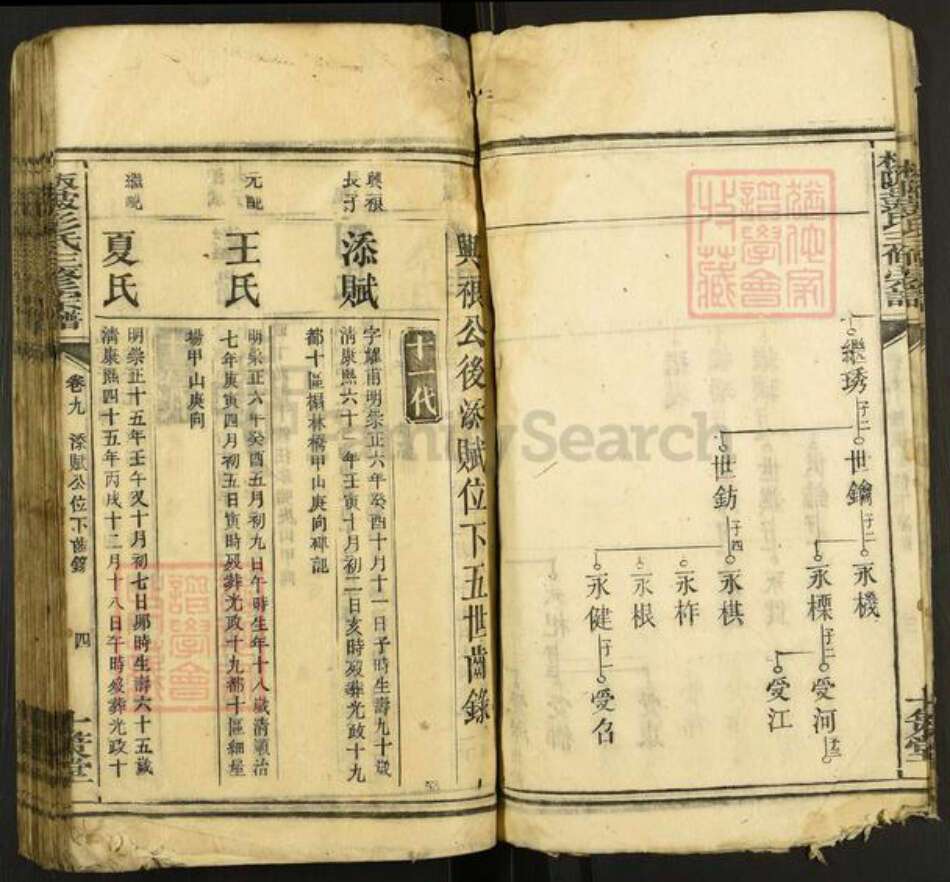 繼琇
子二
世鑰
世鈁
子二
子四
永機
永㮚
永棋
永柞
永根
永健
子二
子一
受河
受江
受召
興祿公後添賦位下五世齒錄
十一代
興祿長子
添賦
字耀甫明崇正六年癸酉十月十一日子時生壽九十歲
清康熙六十一年壬寅十月初二日亥時歿葬光政十九
都十區楊林橋甲山庚向碑記
元配
王氏
明崇正六年癸酉五月初九日午時生年十八歲清順治
七年庚寅四月初五日寅時歿葬光政十九都十區細屋
場甲山庚向
繼配
夏氏
明崇正十五年壬午又十月初七日卯時生壽六十五歲
清康熙四十五年丙戌十二月十八日午時歿葬光政十
彭氏三修宗譜
卷九
添賦公位下齒錄
四
FamilySearch
譜學會
收藏